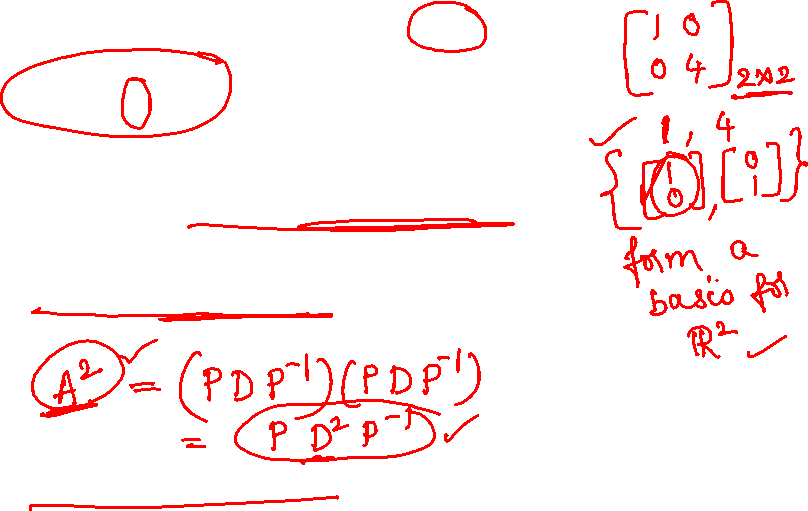 0
[1 0
0 4] 2×2
1, 4
{[1
0], [0
1]}
form a
basis for
ℝ²
A² = (P D P⁻¹)(P D P⁻¹)
= P D² P⁻¹